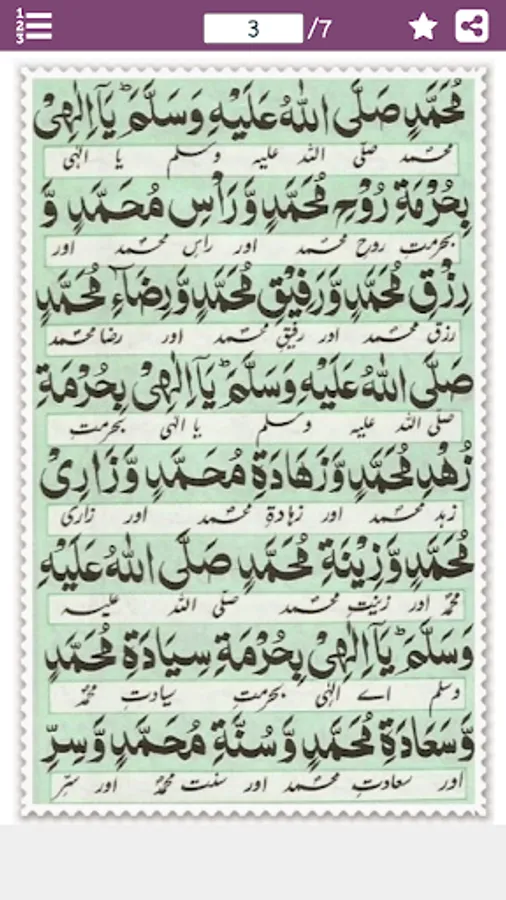 3 /7
مُحَمَّدٍ صَلَّى اللهُ عَلَيْهِ وَسَلَّمَ ؕ يَآ اِلٰهِىْ
محمد صلّی اللہ علیہ وسلم یا الٰہی
بِحُرْمَةِ رُوْحِ مُحَمَّدٍ وَّرَاْسِ مُحَمَّدٍ وَّ
بحرمتِ روحِ محمد اور راسِ محمد اور
رِزْقِ مُحَمَّدٍ وَّرَفِيْقِ مُحَمَّدٍ وَّرِضَآءِ مُحَمَّدٍ
رزق محمد اور رفیقِ محمد اور رضا محمد
صَلَّى اللهُ عَلَيْهِ وَسَلَّمَ ؕ يَآ اِلٰهِىْ بِحُرْمَةِ
صلّی اللہ علیہ وسلم یا الٰہی بحرمتِ
زُهْدِ مُحَمَّدٍ وَّزَهَادَةِ مُحَمَّدٍ وَّزَارِىْ
زہد محمد اور زہادۃِ محمد اور زاری
مُحَمَّدٍ وَّزِيْنَةِ مُحَمَّدٍ صَلَّى اللهُ عَلَيْهِ
محمدؐ اور زینتِ محمد صلّی اللہ علیہ
وَسَلَّمَ ؕ يَآ اِلٰهِىْ بِحُرْمَةِ سِيَادَةِ مُحَمَّدٍ
وسلم اے الٰہی بحرمتِ سیادتِ محمدؐ
وَّسَعَادَةِ مُحَمَّدٍ وَّسُنَّةِ مُحَمَّدٍ وَّسِرِّ
اور سعادتِ محمد اور سنت محمدؐ اور سرِّ